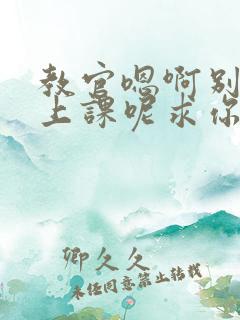 教官嗯啊别
上课呢求你
卿久久
未经同意禁止转载